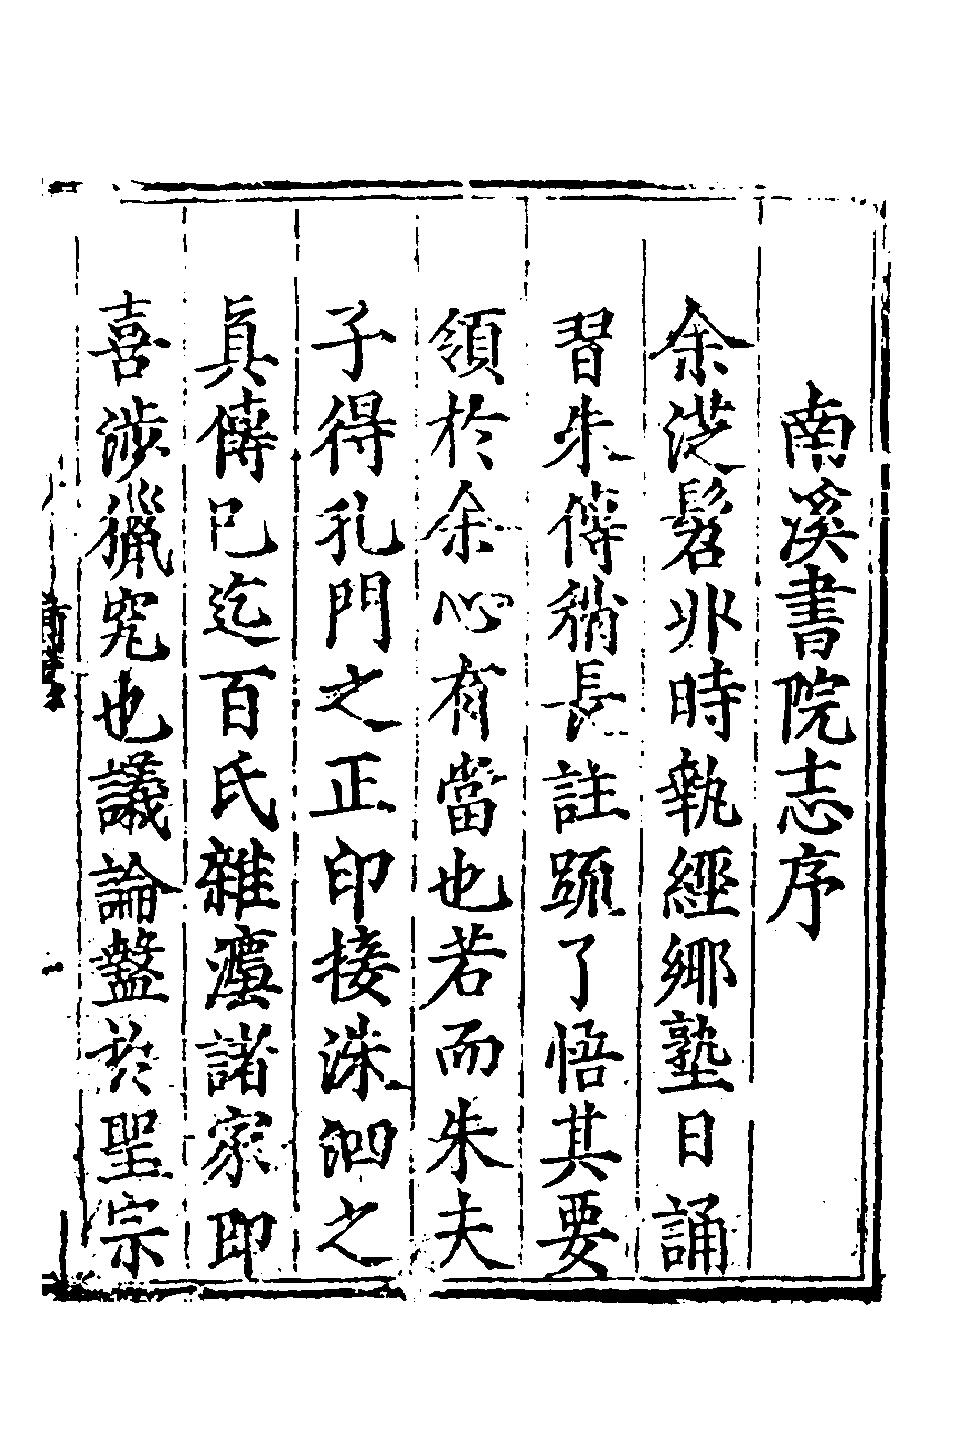 南溪書院志序
余從髫丱時執經鄉塾日誦
習朱傳稍長註䟽了悟其要
領於余心有當也若而朱夫
子得孔門之正印接洙泗之
真傳已迄百氏雜家諸家即
喜涉獵究也議論盩於聖宗